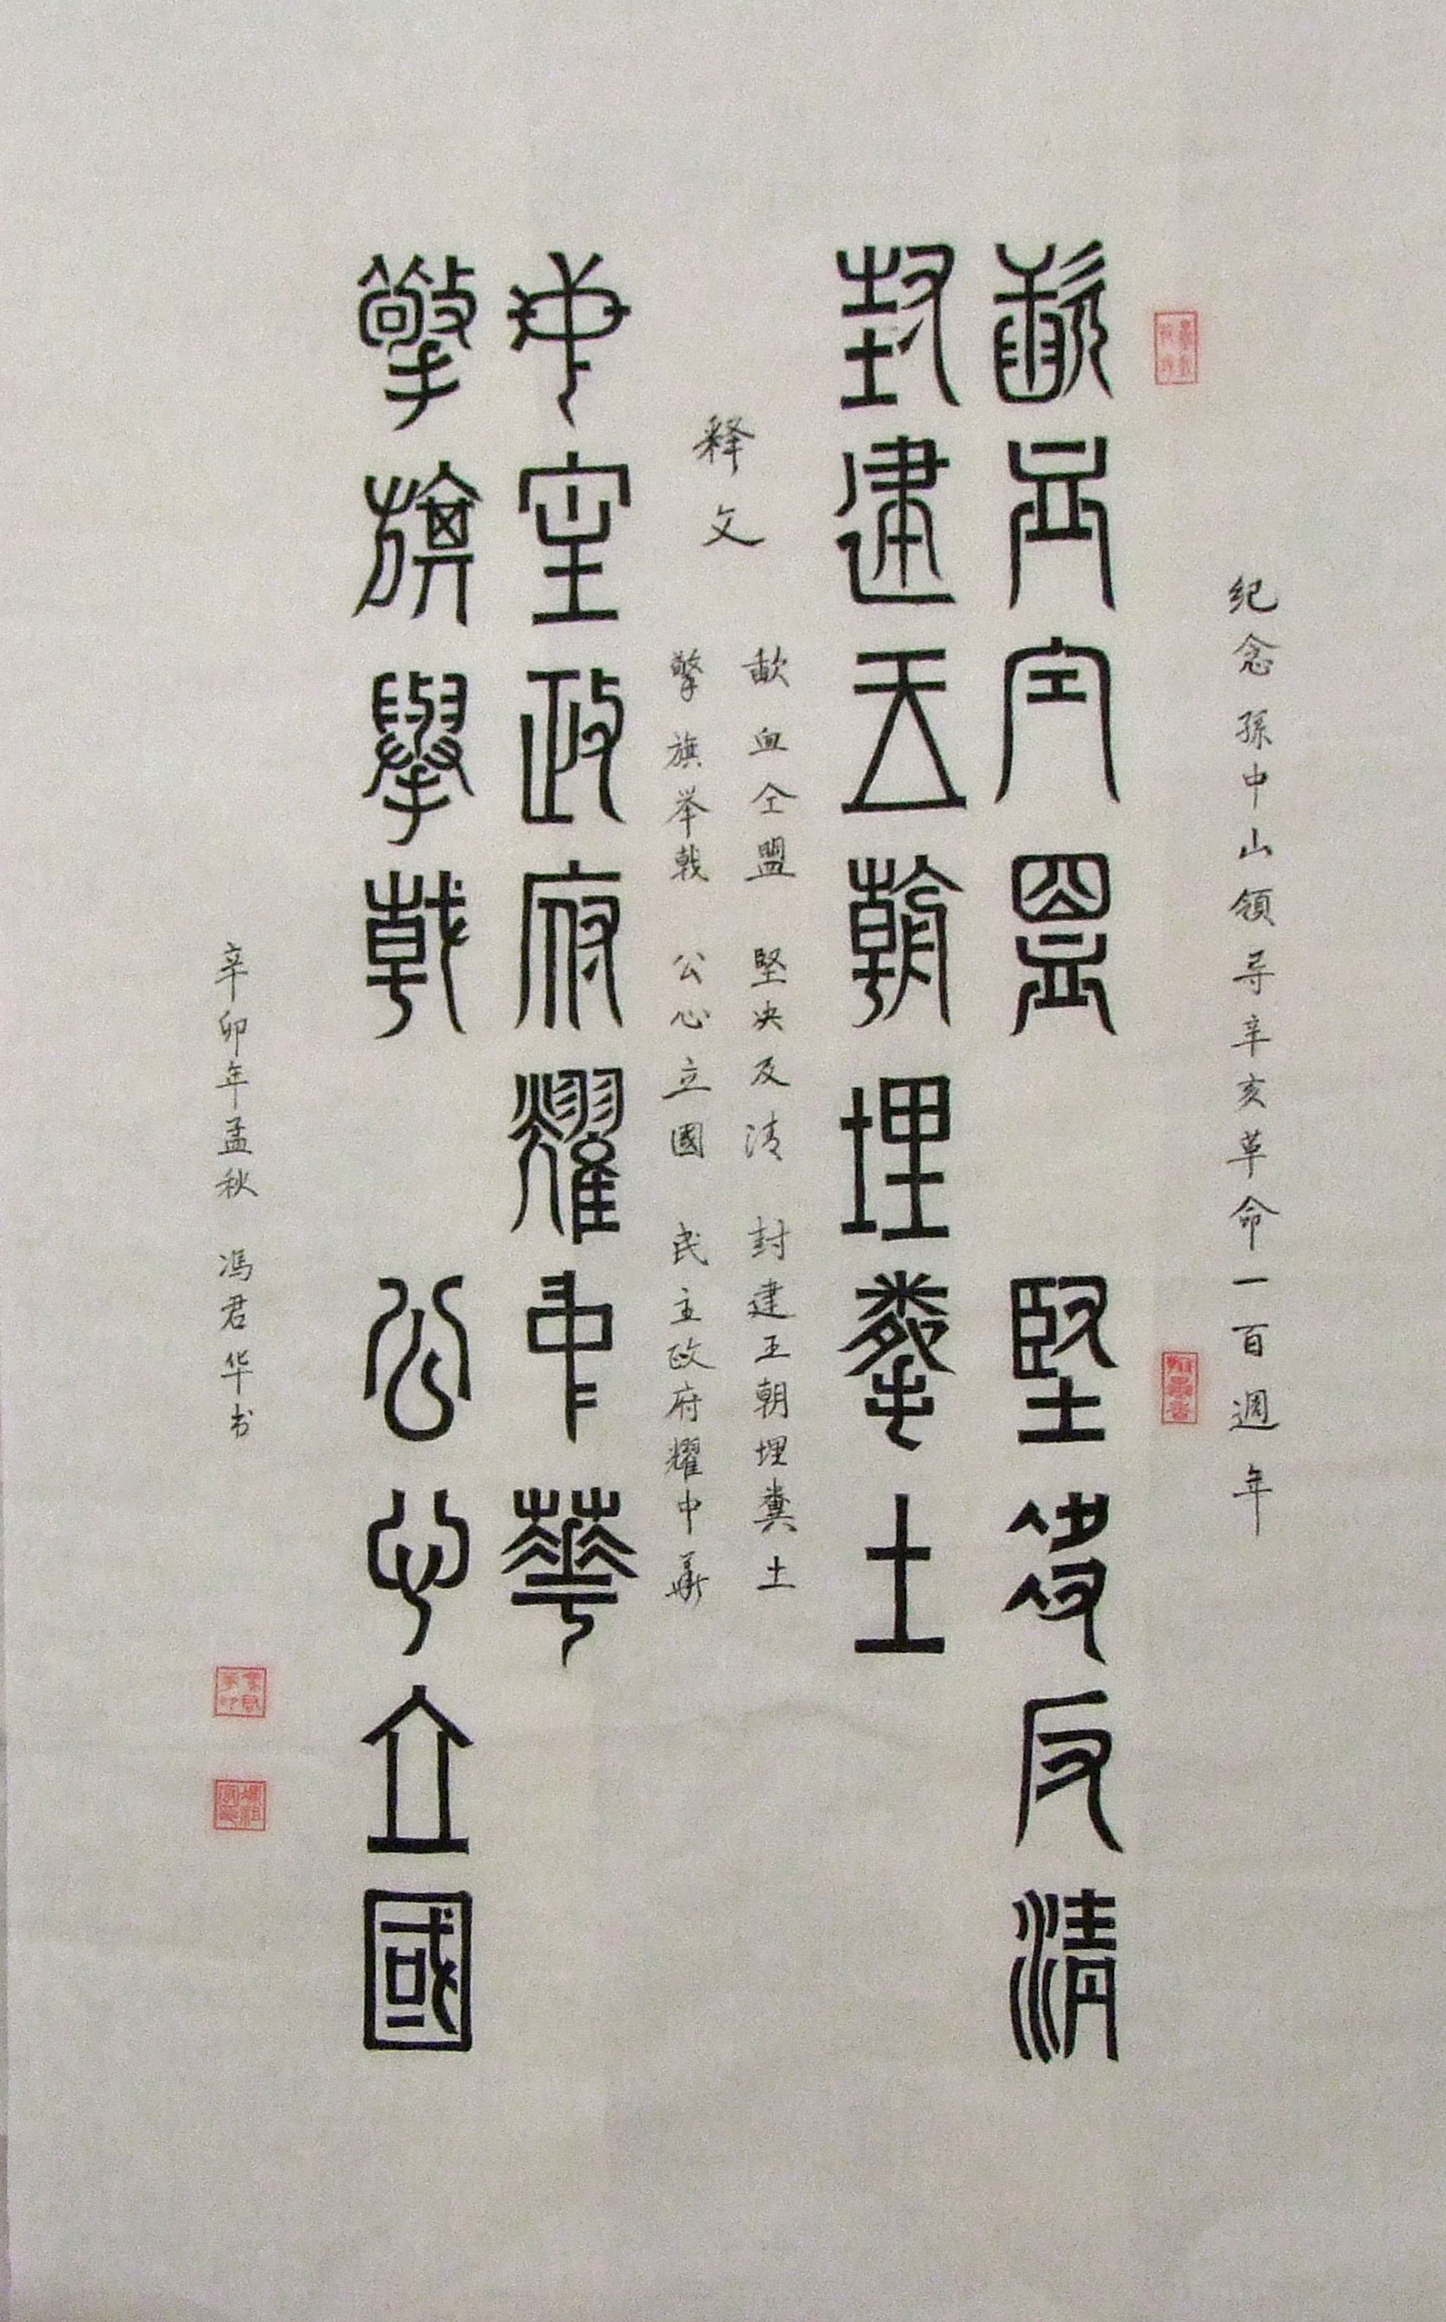 纪念孫中山领导辛亥革命一百週年
歃血仝盟 堅决反清
封建王朝埋糞土
释文
歃血仝盟 堅决反清 封建王朝埋糞土
擎旗举戟 公心立國 民主政府耀中華
民主政府耀中華
擎旗舉戟 公心立國
辛卯年孟秋 冯君华书